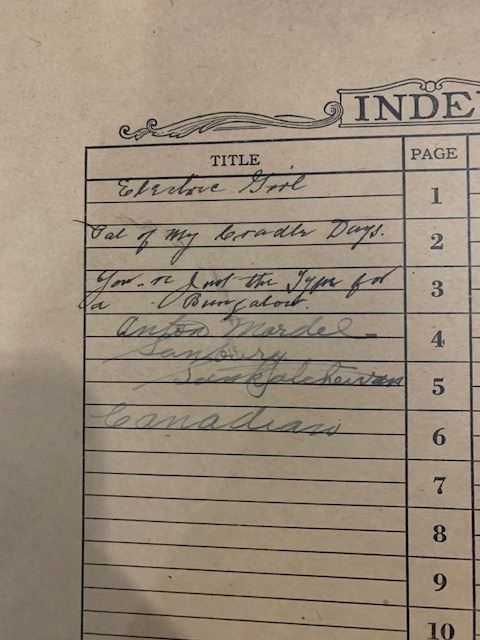 INDE
TITLE
PAGE
Electric Girl
1
Pal of My Cradle Days.
2
You-re Just the Type for
a Bungalow.
3
Anton Mardel
4
Sanburg
Saskatchewan
5
Canadian
6
7
8
9
10